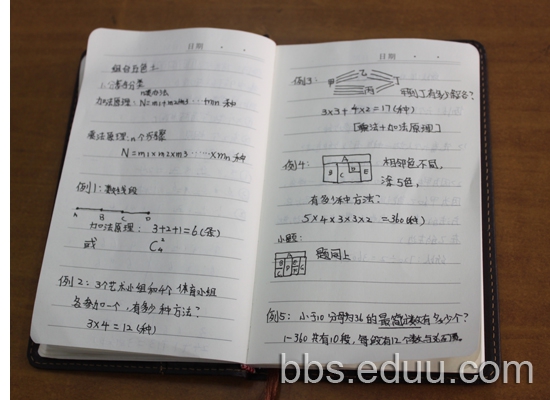 日期
1. 分类与分类
n类办法
加法原理: N=m1+m2+m3……+mn 种
乘法原理: n个步骤
N=m1×m2×m3……×mn 种
例1: 数线段
A B C D
加法原理: 3+2+1=6(条)
或 C²₄
例2: 3个艺术小组和4个体育小组
各参加一个,有多少种方法?
3×4=12(种)
日期
例3:
甲 乙 丙 丁
甲到丁有多少路?
3×3+4×2=17(种)
[乘法+加法原理]
例4:
A B C D E
相邻色不同,
涂5色,
有多少种方法?
5×4×3×3×2=360(种)
小题:
题同上
例5: 小于10分母为36的最简分数有多少个?
1-360共有10段, 每段有12个数与36互质。
bbs.eduu.com